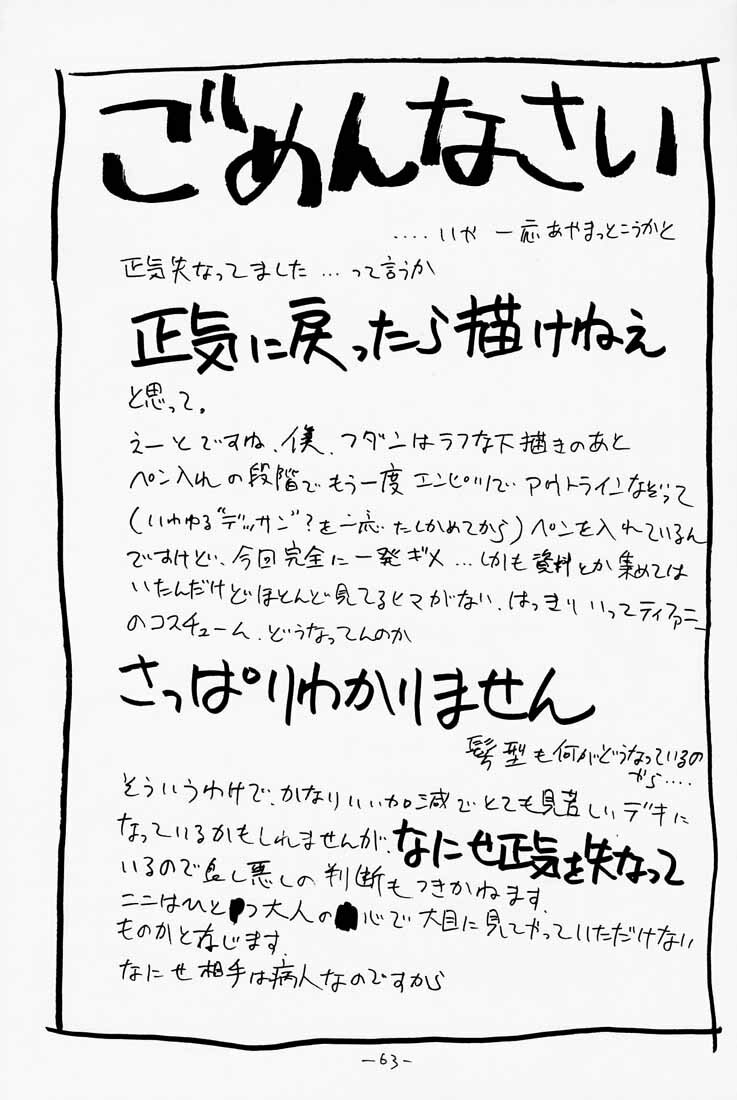 ごめんなさい
‥‥いや 一応あやまっとこうかと
正気失なってました…って言うか
正気に戻ったら描けねえ
と思って。
えーとですね、僕、フダンはラフな下描きのあと
ペン入れの段階でもう一度エンピツでアウトラインなぞって
(いわゆる"デッサン"?を一応たしかめてから)ペンを入れているん
ですけども、今回完全に一発ギメ…しかも資料とか集めては
いたんだけどほとんど見てるヒマがない、はっきりいってティファニー
のコスチューム、どうなってんのか
さっぱりわかりません
髪型も何がどうなっているの
やら‥‥
そういうわけで、かなりいい加減でとても見苦しいデキに
なっているかもしれませんが、なにせ正気を失なって
いるので良し悪しの判断もつきかねます、
ここはひとつ大人の心で大目に見てやっていただけない
ものかと存じます、
なにせ相手は病人なのですから
-63-